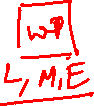 WP
L, M, E